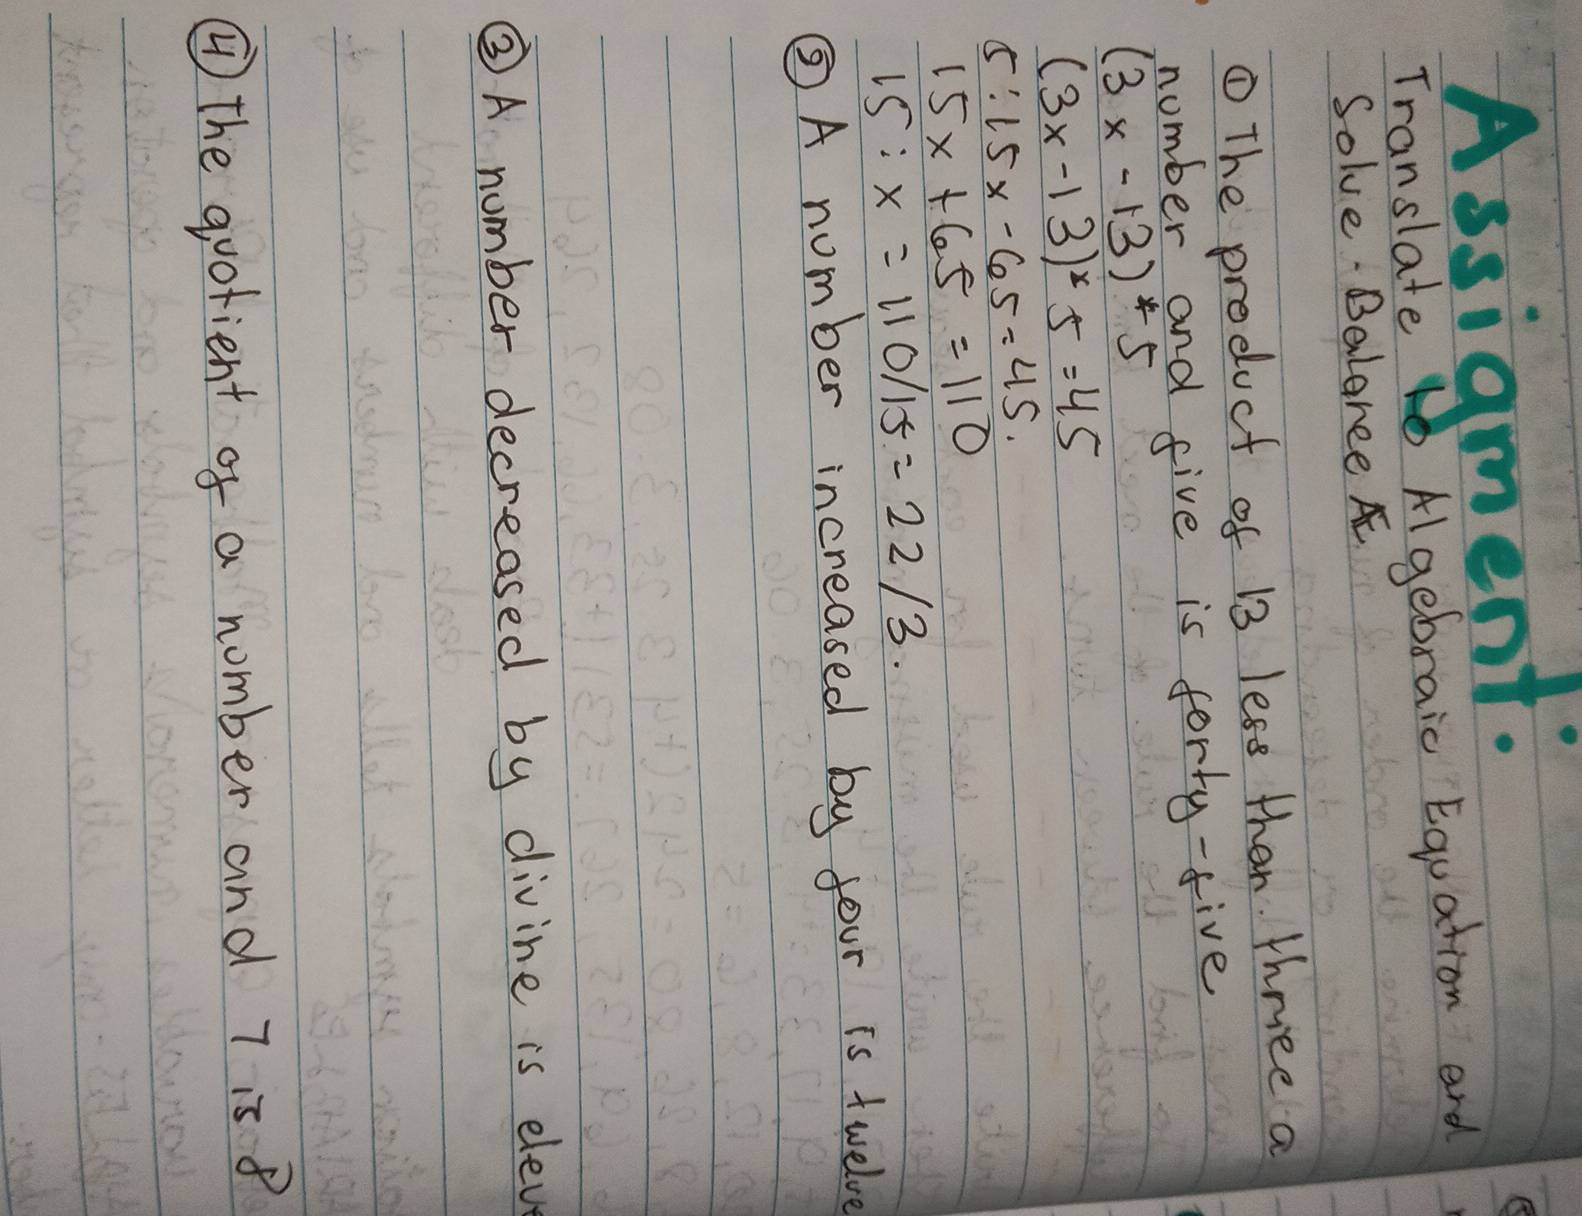 Assigment:
Translate to Algebraic Equation and
Solve. Balance Æ
① The product of 13 less than thriece a
number and five is forty-five
(3x - 13) * 5
(3x - 13) * 5 = 45
5 : 15x - 65 = 45.
15x + 65 = 110
15 : x = 110/15 = 22/3.
② A number increased by four is twelve
③ A number decreased by divine is eleve
④ The quotient of a number and 7 is 8